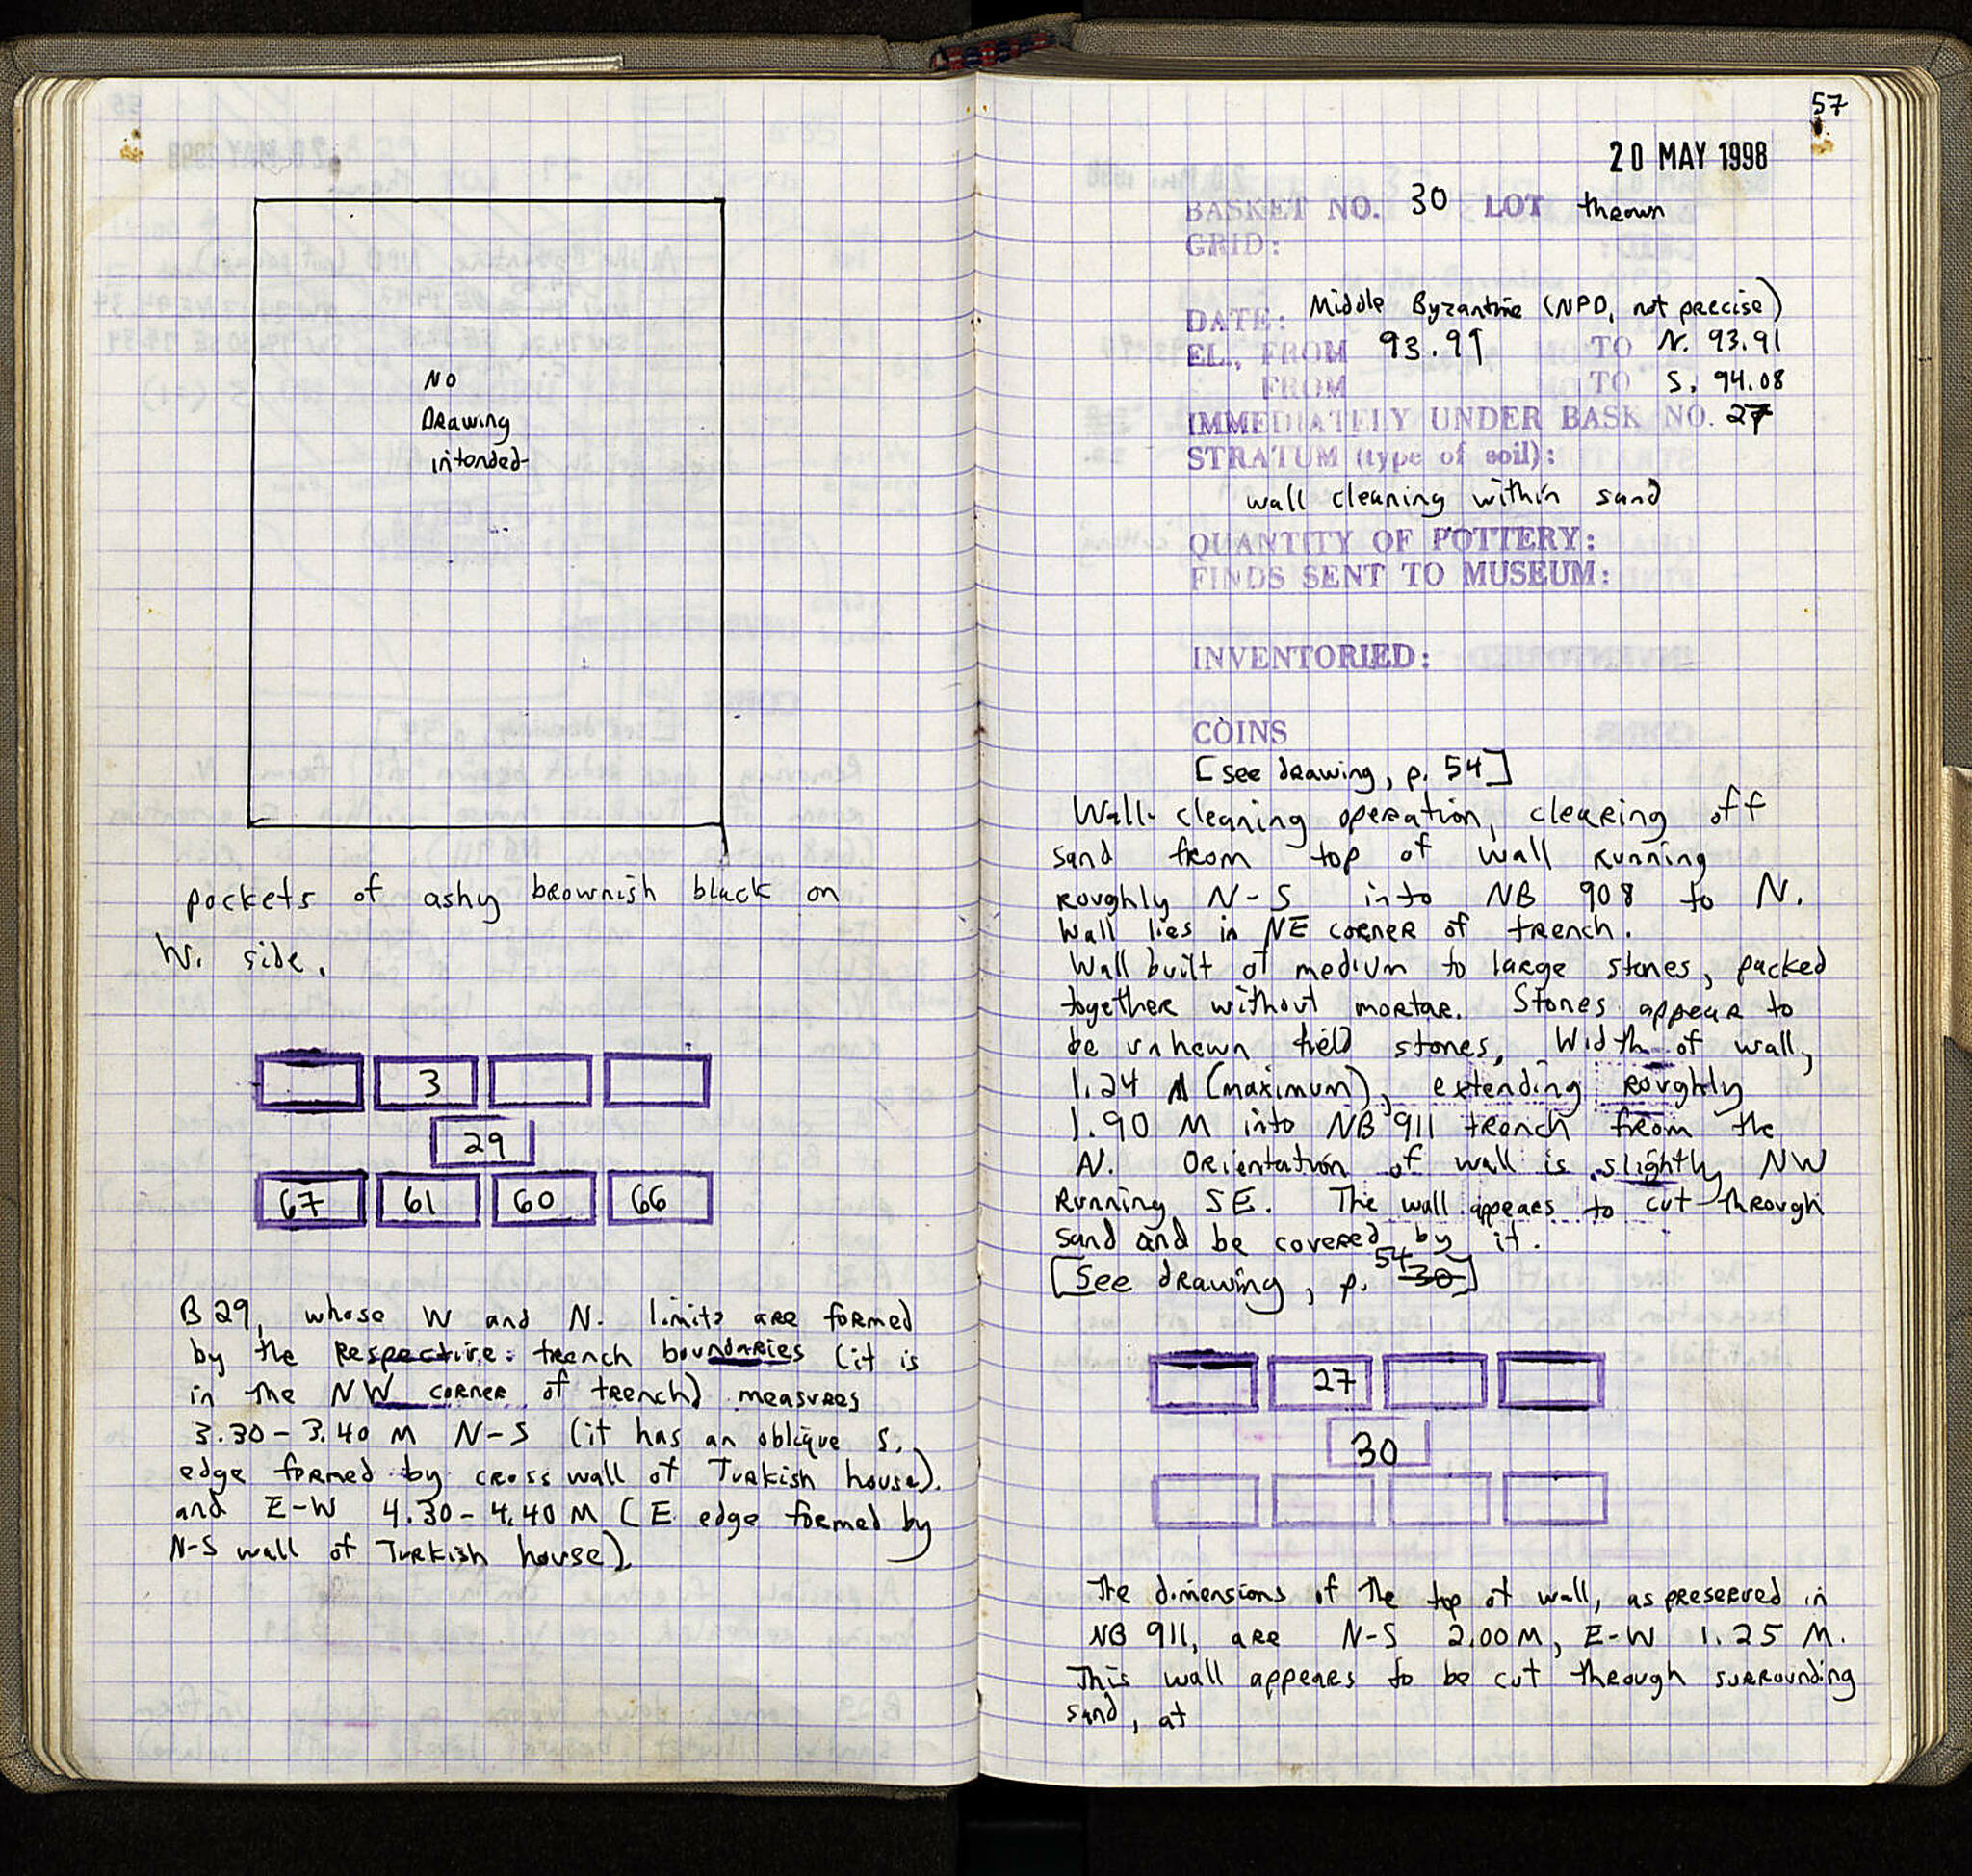 No
Drawing
intended
pockets of ashy brownish black on
W. side.
3
29
67 61 60 66
B 29, whose W and N. limits are formed
by the respective trench boundaries (it is
in the NW corner of trench) measures
3.30 - 3.40 M N-S (it has an oblique S.
edge formed by cross wall of Turkish house).
and E-W 4.30 - 4.40 M (E edge formed by
N-S wall of Turkish house).
57
20 MAY 1998
BASKET NO. 30 LOT thrown
GRID:
DATE: Middle Byzantine (NPD, not precise)
EL., FROM 93.91 TO N. 93.91
FROM TO S. 94.08
IMMEDIATELY UNDER BASK NO. 27
STRATUM (type of soil):
wall cleaning within sand
QUANTITY OF POTTERY:
FINDS SENT TO MUSEUM:
INVENTORIED:
COINS
[see drawing, p. 54]
Wall cleaning operation, clearing off
sand from top of wall running
roughly N-S into NB 908 to N.
Wall lies in NE corner of trench.
Wall built of medium to large stones, packed
together without mortar. Stones appear to
be unhewn field stones, Width of wall,
1.24 M (maximum), extending roughly
1.90 M into NB 911 trench from the
N. Orientation of wall is slightly NW
running SE. The wall appears to cut through
sand and be covered by it.
[See drawing, p. 54 30]
27
30
The dimensions of the top of wall, as preserved in
NB 911, are N-S 2.00 M, E-W 1.25 M.
This wall appears to be cut through surrounding
sand, at